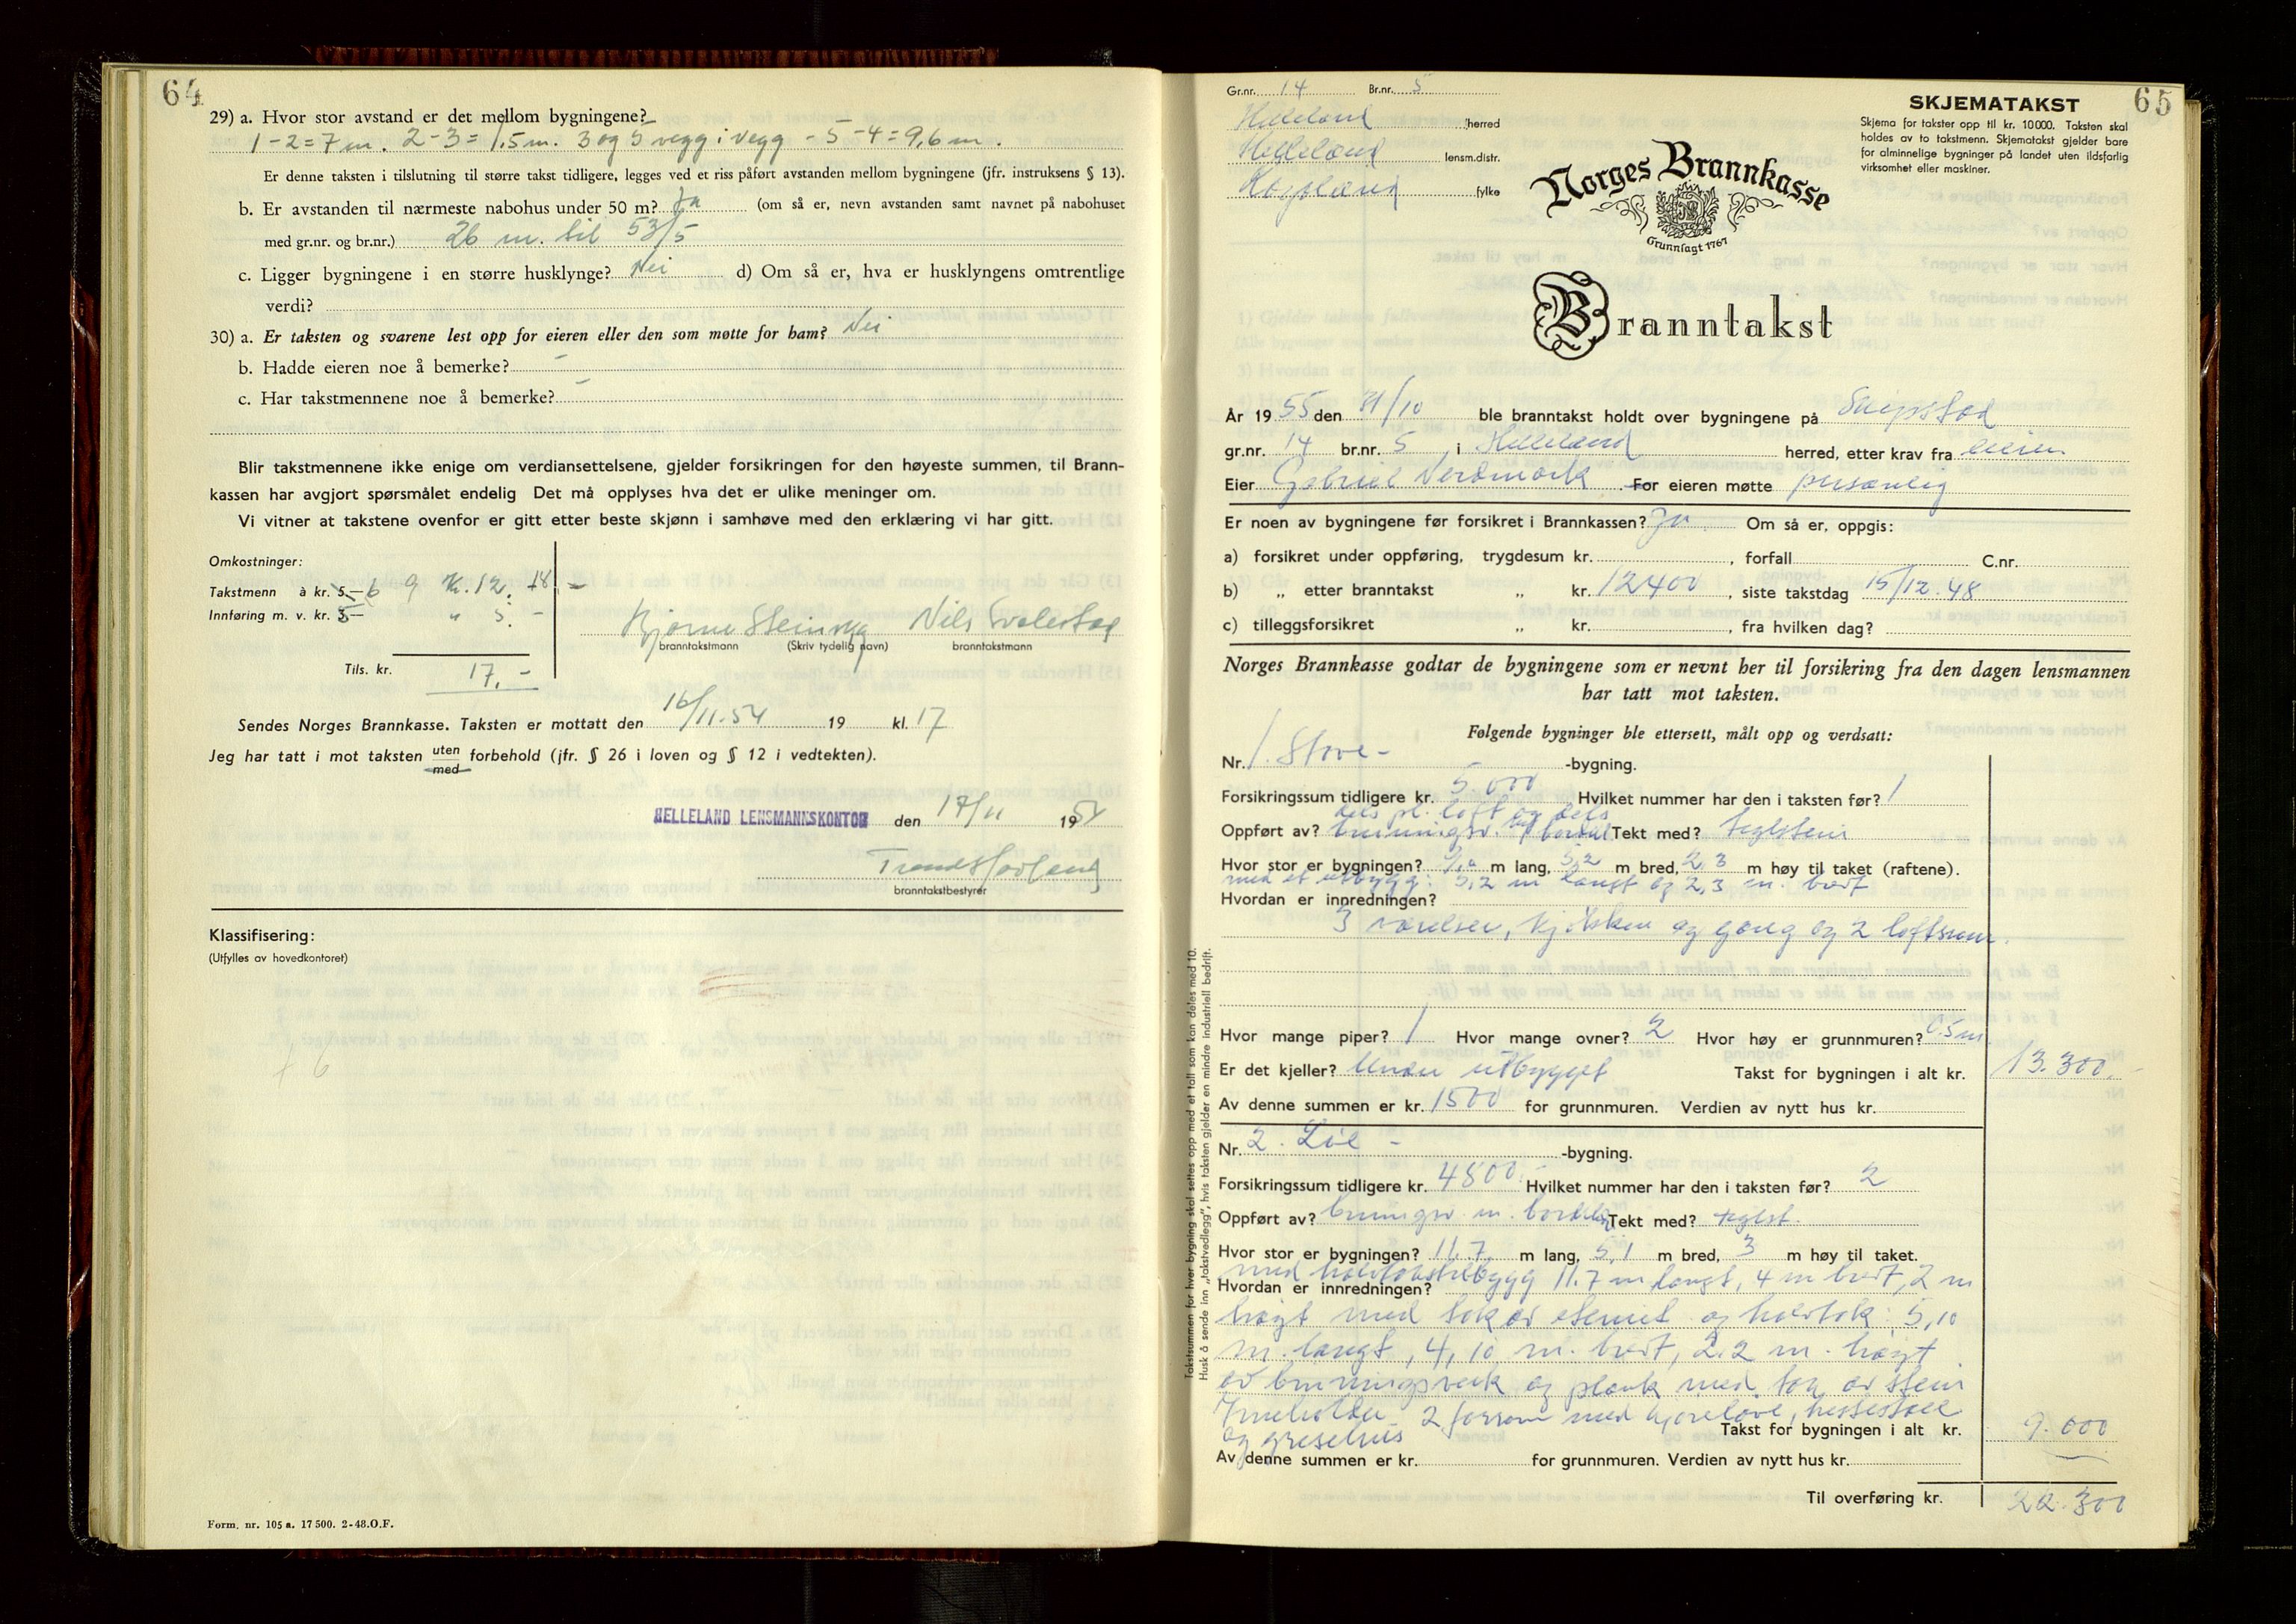 64
29) a. Hvor stor avstand er det mellom bygningene?
1-2=7 m. 2-3= 1,5 m. 3 og 5 vegg i vegg - 5-4=9,6 m.
Er denne taksten i tilslutning til større takst tidligere, legges ved et riss påført avstanden mellom bygningene (jfr. instruksens § 13).
b. Er avstanden til nærmeste nabohus under 50 m? Ja (om så er, nevn avstanden samt navnet på nabohuset
med gr.nr. og br.nr.) 26 m. til 53/5
c. Ligger bygningene i en større husklynge? Nei d) Om så er, hva er husklyngens omtrentlige
verdi?
30) a. Er taksten og svarene lest opp for eieren eller den som møtte for ham? Nei
b. Hadde eieren noe å bemerke? -
c. Har takstmennene noe å bemerke? -
Blir takstmennene ikke enige om verdiansettelsene, gjelder forsikringen for den høyeste summen, til Brann-
kassen har avgjort spørsmålet endelig Det må opplyses hva det er ulike meninger om.
Vi vitner at takstene ovenfor er gitt etter beste skjønn i samhøve med den erklæring vi har gitt.
Omkostninger:
Takstmenn à kr. 5.— 6 9 Kr. 12. 18 -
Innføring m. v. kr. 3— 5 " 5. -
Bjarne Steinsvg Nils Svalestad
branntakstmann (Skriv tydelig navn) branntakstmann
Tils. kr. 17.-
Sendes Norges Brannkasse. Taksten er mottatt den 16/11.54 19 kl. 17
Jeg har tatt i mot taksten uten med forbehold (jfr. § 26 i loven og § 12 i vedtekten).
HELLELAND LENSMANNSKONTOR den 17/11 1954
branntakstbestyrer
Klassifisering:
(Utfylles av hovedkontoret)
+ 6
Form. nr. 105 a. 17 500. 2-48. O.F.
65
Gr.nr. 14 Br.nr. 5
Helleland herred
Helleland lensm.distr.
Rogaland fylke
SKJEMATAKST
Skjema for takster opp til kr. 10 000. Taksten skal
holdes av to takstmenn. Skjematakst gjelder bare
for alminnelige bygninger på landet uten ildsfarlig
virksomhet eller maskiner.
Norges Brannkasse
Grunnlagt 1767
Branntakst
År 1955 den 31/10 ble branntakst holdt over bygningene på Skipstad
gr.nr. 14 br.nr. 5 i Helleland herred, etter krav fra eieren
Eier Gabriel Nerdmark For eieren møtte personlig
Er noen av bygningene før forsikret i Brannkassen? Ja Om så er, oppgis:
a) forsikret under oppføring, trygdesum kr. , forfall C.nr.
b) „ etter branntakst „ kr. 12400 , siste takstdag 15/12.48
c) tilleggsforsikret „ kr. , fra hvilken dag?
Norges Brannkasse godtar de bygningene som er nevnt her til forsikring fra den dagen lensmannen
har tatt mot taksten.
Følgende bygninger ble ettersett, målt opp og verdsatt:
Nr. 1. Stove- -bygning.
Forsikringssum tidligere kr. 5 000 Hvilket nummer har den i taksten før? 1
dels pl. loft og dels
Oppført av? bunningsv. og bordkl Tekt med? teglstein
Hvor stor er bygningen? 9,0 m lang, 5,2 m bred, 2,3 m høy til taket (raftene).
med et utbygg: 5,2 m langt og 2,3 m. bredt
Hvordan er innredningen?
3 værelser, kjøkken og gang og 2 loftsrom.
Hvor mange piper? 1 Hvor mange ovner? 2 Hvor høy er grunnmuren? 0.5 m
Er det kjeller? Under utbygget Takst for bygningen i alt kr. 13.300.-
Av denne summen er kr. 1500 for grunnmuren. Verdien av nytt hus kr.
Nr. 2. Löe - -bygning.
Forsikringssum tidligere kr. 4800.- Hvilket nummer har den i taksten før? 2
Oppført av? bunnigsv. m. bordkledn Tekt med? teglst.
Hvor stor er bygningen? 11.7 m lang, 5,1 m bred, 3 m høy til taket.
med halvtakstilbygg 11.7 m langt, 4 m bredt, 2 m
Hvordan er innredningen?
høgt med tak av eternit og halvtak: 5,10
m. langt, 4,10 m. bredt, 2.2 m. høgt
av bunningsverk og plank med tak av stein
Inneholder 2 forrom med kjørelåve, hestestall
og grisehus
Takst for bygningen i alt kr. 9.000
Av denne summen er kr. for grunnmuren. Verdien av nytt hus kr.
Til overføring kr. 22.300
Takstsummen for hver bygning skal settes opp med et tall som kan deles med 10.
Husk å sende inn „takstvedlegg", hvis taksten gjelder en mindre industriell bedrift.